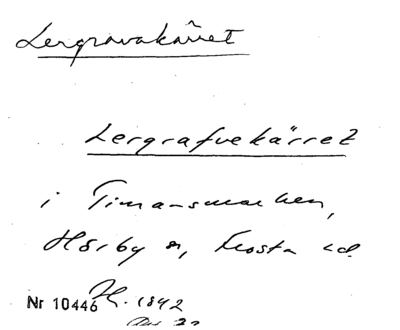 Lergravakärret
Lergrafvekärret
i Timansmarken,
Hörby sn, Frosta hd.
Nr 10446 1842